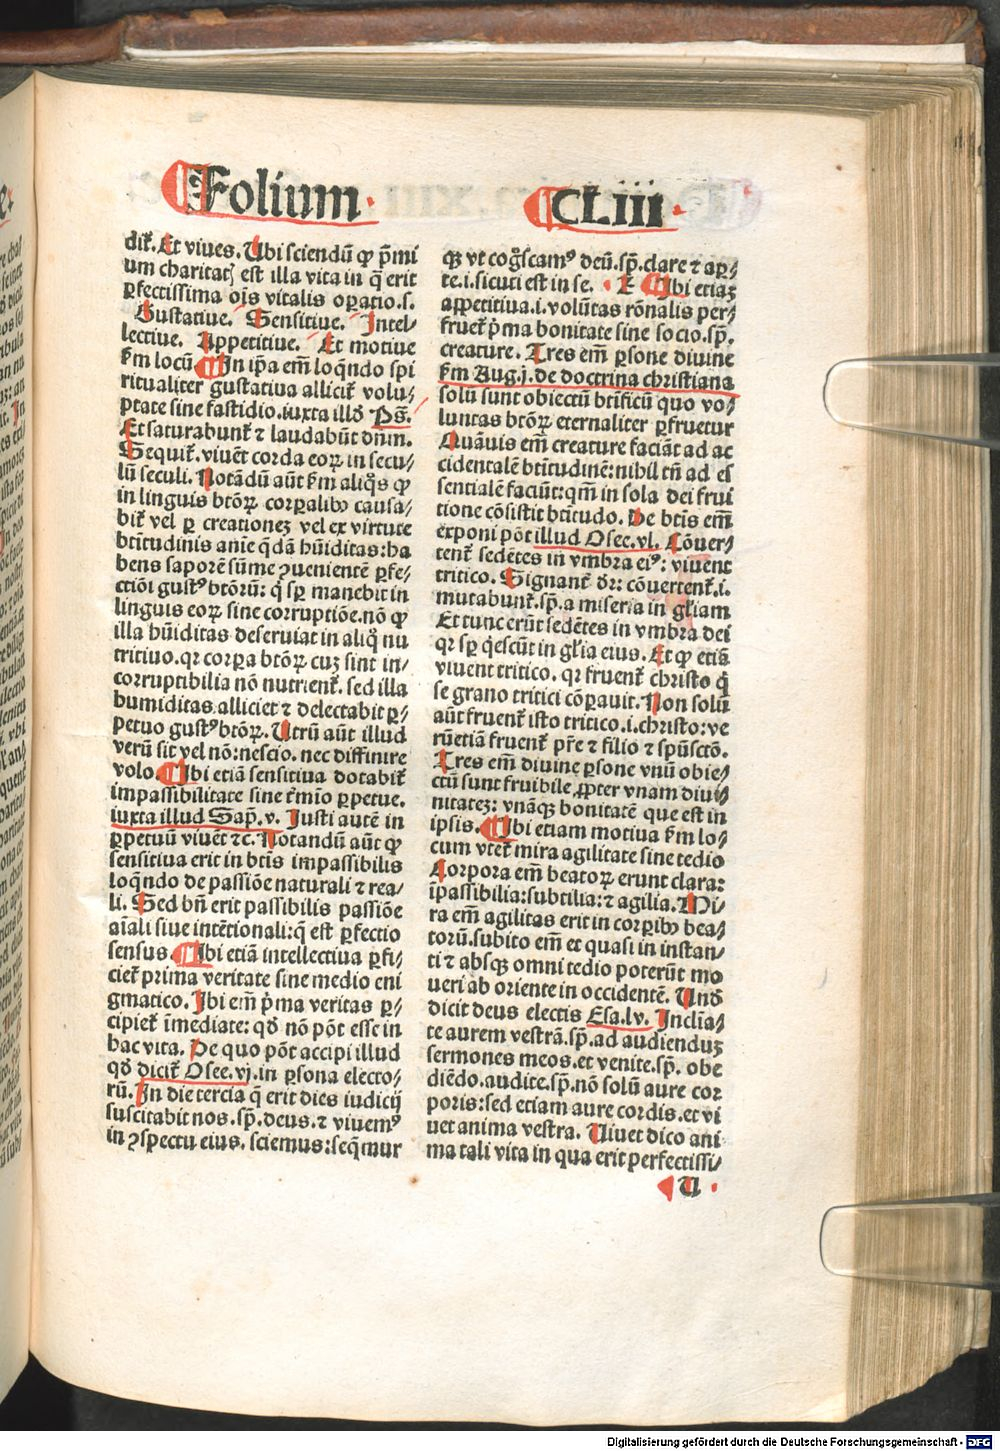 Folium
CLiii
dit̃. Et viues. Ubi sciendũ ꝙ p̃mi
um charitatꝭ est illa vita in q̃ erit
ꝑfectissima oĩs vitalis oꝑatio. s.
Gustatiue. Sensitiue. Intel-
lectiue. Appetitiue. Et motiue
ẜm locũ. In ip̃a em̃ loq̃ndo spi
ritualiter gustatiua allicit̃ volu/
ptate sine fastidio. iuxta illđ Ps̃.
Et saturabunt̃ ⁊ laudabũt dnm̃.
Sequit̃. viuẽt corda eoꝝ in secu/
lũ seculi. Notãdũ aũt ẜm aliq̃s ꝙ
in linguis btõꝝ corꝑalibꝰ causa/
bit̃ vel ꝑ creationeꝫ vel ex virtute
btĩtudinis anĩe q̃dã hũiditas: ha
bens saporẽ sũme ꝯuenientẽ ꝑfe/
ctiõi gustꝰ btõrũ: q̃ sp̃ manebit in
linguis eoꝝ sine corruptiõe. nõ ꝙ
illa hũiditas deseruiat in aliq̃ nu
tritiuo. qꝛ corꝑa btõꝝ cuꝫ sint in/
corruptibilia nõ nutrient̃. sed illa
humiditas alliciet ⁊ delectabit ꝑ/
petuo gustꝰ btõꝝ. Utrũ aũt illud
verũ sit vel nõ: nescio. nec diffinire
volo. Ibi etiã sensitiua dotabit̃
impassibilitate sine t̃mĩo ꝑpetue.
iuxta illud Sap̃. v. Justi autẽ in
ꝑpetuũ viuẽt ⁊c. Notandũ aũt ꝙ
sensitiua erit in btĩs impassibilis
loq̃ndo de passiõe naturali ⁊ rea/
li. Sed bñ erit passibilis passiõe
aĩali siue intẽtionali: q̃ est ꝑfectio
sensus. Ibi etiã intellectiua ꝑfi/
ciet̃ prima veritate sine medio eni
gmatico. Ibi em̃ p̃ma veritas ꝑ/
cipiet̃ ĩmediate: qđ nõ põt esse in
hac vita. De quo põt accipi illud
qđ dicit̃ Osee. vj. in ꝑsona electo/
rũ. In die tercia q̃ erit dies iudicij
suscitabit nos. sp̃. deus. ⁊ viuemꝰ
in ꝯspectu eius. sciemus: seq̃mur
qꝫ vt cog̃scamꝰ deũ. sp̃. clare ⁊ aꝑ/
te. i. sicuti est in se. Ibi etiaꝫ
appetitiua. i. volũtas rõnalis per/
fruet̃ p̃ma bonitate sine socio. sp̃.
creature. Tres em̃ ꝑsone diuine
ẜm Aug. j. de doctrina christiana
solũ sunt obiectũ btĩficũ quo vo/
luntas btõꝝ eternaliter ꝑfruetur
Quãuis em̃ creature faciãt ad ac
cidentalẽ btĩtudinẽ: nihil tñ ad es
sentialẽ faciũt: qm̃ in sola dei frui
tione cõsistit btĩtudo. De btĩs em̃
exponi põt illud Osee. vl. Cõuer/
tent̃ sedẽtes in vmbra eiꝰ: viuent
tritico. Signant̃ dr̃: cõuertent̃. i.
mutabunt̃. sp̃. a miseria in gl̃iam
Et tunc erũt sedẽtes in vmbra dei
qꝛ sp̃ q̃escũt in gl̃ia eius. Et ꝙ etiã
viuent tritico. qꝛ fruent̃ christo q̃
se grano tritici cõꝑauit. Non solũ
aũt fruent̃ isto tritico. i. christo: ve
rũetiã fruent̃ prẽ ⁊ filio ⁊ spũsctõ.
Tres em̃ diuine ꝑsone vnũ obie/
ctũ sunt fruibile ꝓpter vnam diui/
nitateꝫ: vnãqꝫ bonitatẽ que est in
ipsis. Ibi etiam motiua ẜm lo/
cum vtet̃ mira agilitate sine tedio
Corpora em̃ beatoꝝ erunt clara:
ĩpassibilia: subtilia: ⁊ agilia. Mi/
ra em̃ agilitas erit in corꝑibꝰ bea/
torũ. subito em̃ et quasi in instan/
ti ⁊ absqꝫ omni tedio poterũt mo
ueri ab oriente in occidentẽ. Unđ
dicit deus electis Esa. lv. Inclĩa/
te aurem vestrã. sp̃. ad audienduꝫ
sermones meos. et venite. sp̃. obe
diẽdo. audite. sp̃. nõ solũ aure cor
poris: sed etiam aure cordis. et vi
uet anima vestra. Uiuet dico ani
ma tali vita in qua erit perfectissi/
U
Digitalisierung gefördert durch die Deutsche Forschungsgemeinschaft - DFG